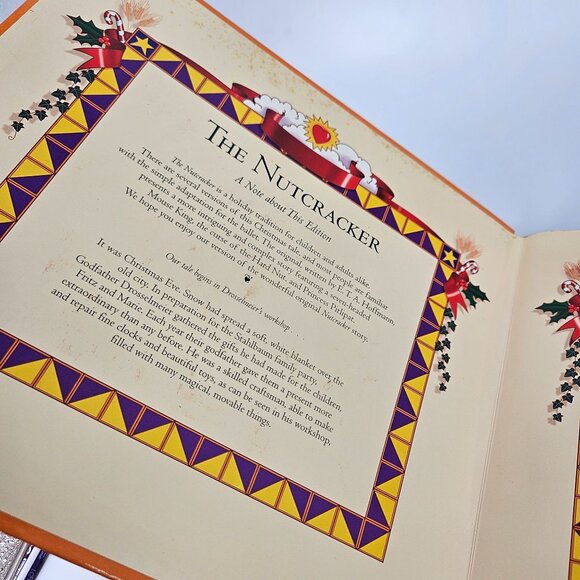 THE NUTCRACKER
A Note about This Edition
The Nutcracker is a holiday tradition for children and adults alike.
There are several versions of this Christmas tale, and most people are familiar
with the simple adaptation for the ballet. The original, written by E. T. A. Hoffmann,
presents a more intriguing and complex story featuring a seven-headed
Mouse King, the curse of the Hard Nut, and Princess Pirlipat.
We hope you enjoy our version of the wonderful original Nutcracker story.
Our tale begins in Drosselmeier's workshop . . .
It was Christmas Eve. Snow had spread a soft, white blanket over the
old city. In preparation for the Stahlbaum family party,
Godfather Drosselmeier gathered the gifts he had made for the children,
Fritz and Marie. Each year their godfather gave them a present more
extraordinary than any before. He was a skilled craftsman, able to make
and repair fine clocks and beautiful toys, as can be seen in his workshop,
filled with many magical movable things.